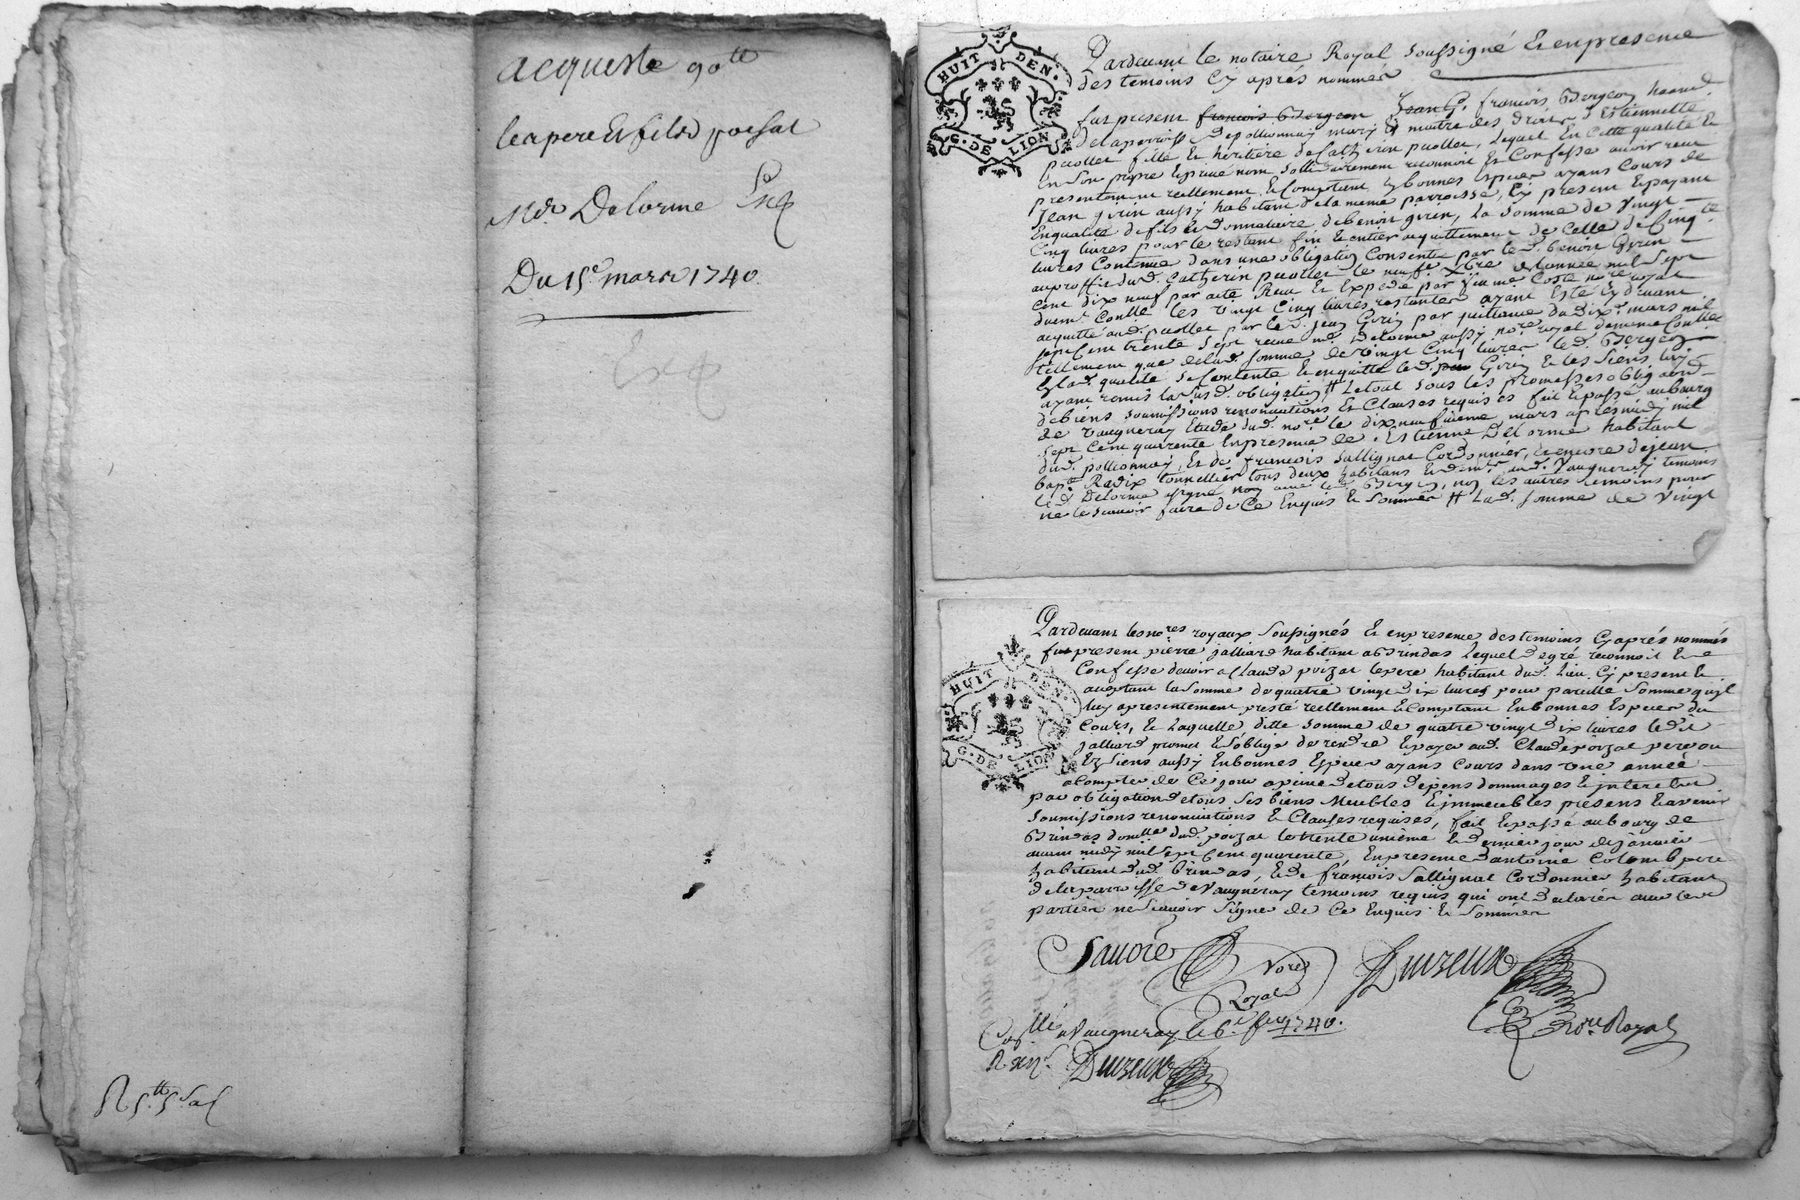 acqueste 90tt
les pere Et fils poisat
Mr Delorme Exp
Du 15e mars 1740.
Exp
R 5tt 5 s
HUIT DEN.
G. DE LION
Pardevant le notaire Royal soussigné Et en presence
des temoins cy aprés nommés
fut present francois Bergeon Jean f. francois Bergeon
de la parroisse de pollionnay mary Et maitre des droits d'Estiennette
puollet fille Et heritiere de Catherin puollet, Lequel En Cette qualité Et
En son propre Et privé nom sollidairement reconnoit Et Confesse avoir reçu
presentement reellement Et Comptant En bonnes Especes ayans Cours de
Jean girin aussy habitant de la meme parroisse, Cy present Et payant
En qualité de fils Et donnataire de benoit girin, la somme de Vingt
Cinq livres pour le restant fin Et entier acquittement de Celle de Cinqte
livres Contenue dans une obligation Consentie par led. benoit Girin
au proffit dud. Catherin puollet le neufe xbre de l'année mil sept
Cent dix neuf par acte Recu Et Expedié par Coste nore royal
les vingt Cinq livres restantes ayant Esté Cy devant
acquitté aud. puollet par led. jean Girin par quittance du dixe mars mil
sept Cent trente sept recue me Delorme aussy nore royal
tellement que de lad. somme de vingt Cinq livres led. Bergeon
En lad. qualité se Contente Et en quitte led. Girin Et les siens luy
ayant remis la susd. obligation # Le tout sous les promesses oblig aond.
de biens soumissions renonciations Et Clauses requises fait Et passé au bourg
de Vaugneray Etude dud. nore le dix neufvieme mars aprés midy mil
sept Cent quarente En presence de Estienne Delorme habitant
dud. pollionnay, Et de francois sallignat Cordonnier, Et encore de jean
bapte Radix tonnellier tous deux habitans Et demts aud. Vaugneray temoins
led. Delorme a signé non avec led. Bergeon, non les autres temoins pour
ne le scavoir faire de Ce Enquis Et Sommés # Lad. somme de Vingt
HUIT DEN.
G. DE LION
Pardevant les nores royaux Soussignés Et en presence des temoins Cy aprés nommés
fut present pierre jalliard habitant a Brindas Lequel de gré reconnoit Et
Confesse devoir a Claude poizat le pere habitant dud. Lieu Cy present Et
aceptant la somme de quatre vingt dix livres pour pareille somme quil
luy a presentement presté reellement Et Comptant En bonnes Especes du
Cours, Et Laquelle ditte somme de quatre vingt dix livres ledit
jalliard promet Et s'oblige de rendre Et payer aud. Claude poizat pere ou
Es siens aussy En bonnes Especes ayans Cours dans une année
a Compter de Ce jour a peine de tous depens dommages Et interets
par obligation de tous ses biens Meubles Et immeubles presens Et avenir
soumissions renonciations Et Clauses requises, fait Et passé au bourg de
Brindas domille dud. poizat le trente unieme Et dernier jour de janvier
avant midy mil sept Cent quarente, En presence d'antoine Colomb pere
habitant dud. brindas, Et de francois Sallignat Cordonnier habitant
de la parroisse de Vaugneray temoins requis qui ont declarés avec les
parties ne Scavoir Signer de Ce Enquis Et Sommés
Savoie Nore Royal
Duvzeux Nore Royal
Collé a Vaugneray le 6e fev 1740.
R. Duvzeux